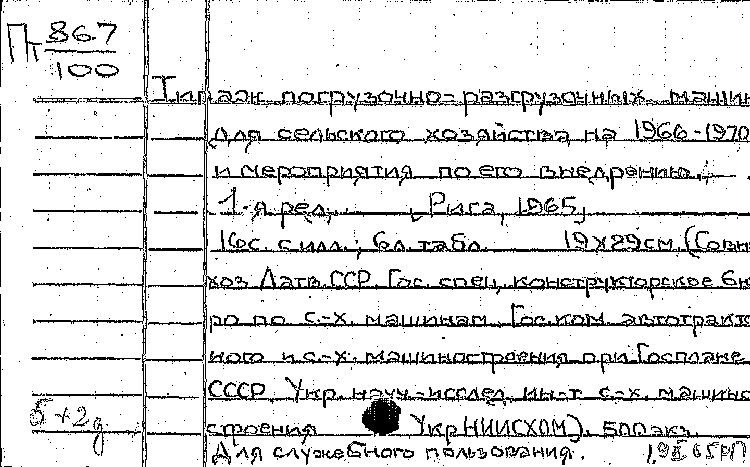 Пт 867
100
Типаж погрузочно-разгрузочных машин
для сельского хозяйства на 1966-1970
и мероприятия по его внедрению.
1-я ред. Рига, 1965,
16с. с илл.; 6л. табл. 19х29см. (Совн
хоз Латв. ССР. Гос. спец. конструкторское бю
ро по с.-х. машинам. Гос. ком. автотракто
ного и с.-х. машиностроения при Госплане
СССР. Укр. науч.-исслед. ин-т с.-х. машино
строения УкрНИИСХОМ). 500 экз.
5+2д
Для служебного пользования.